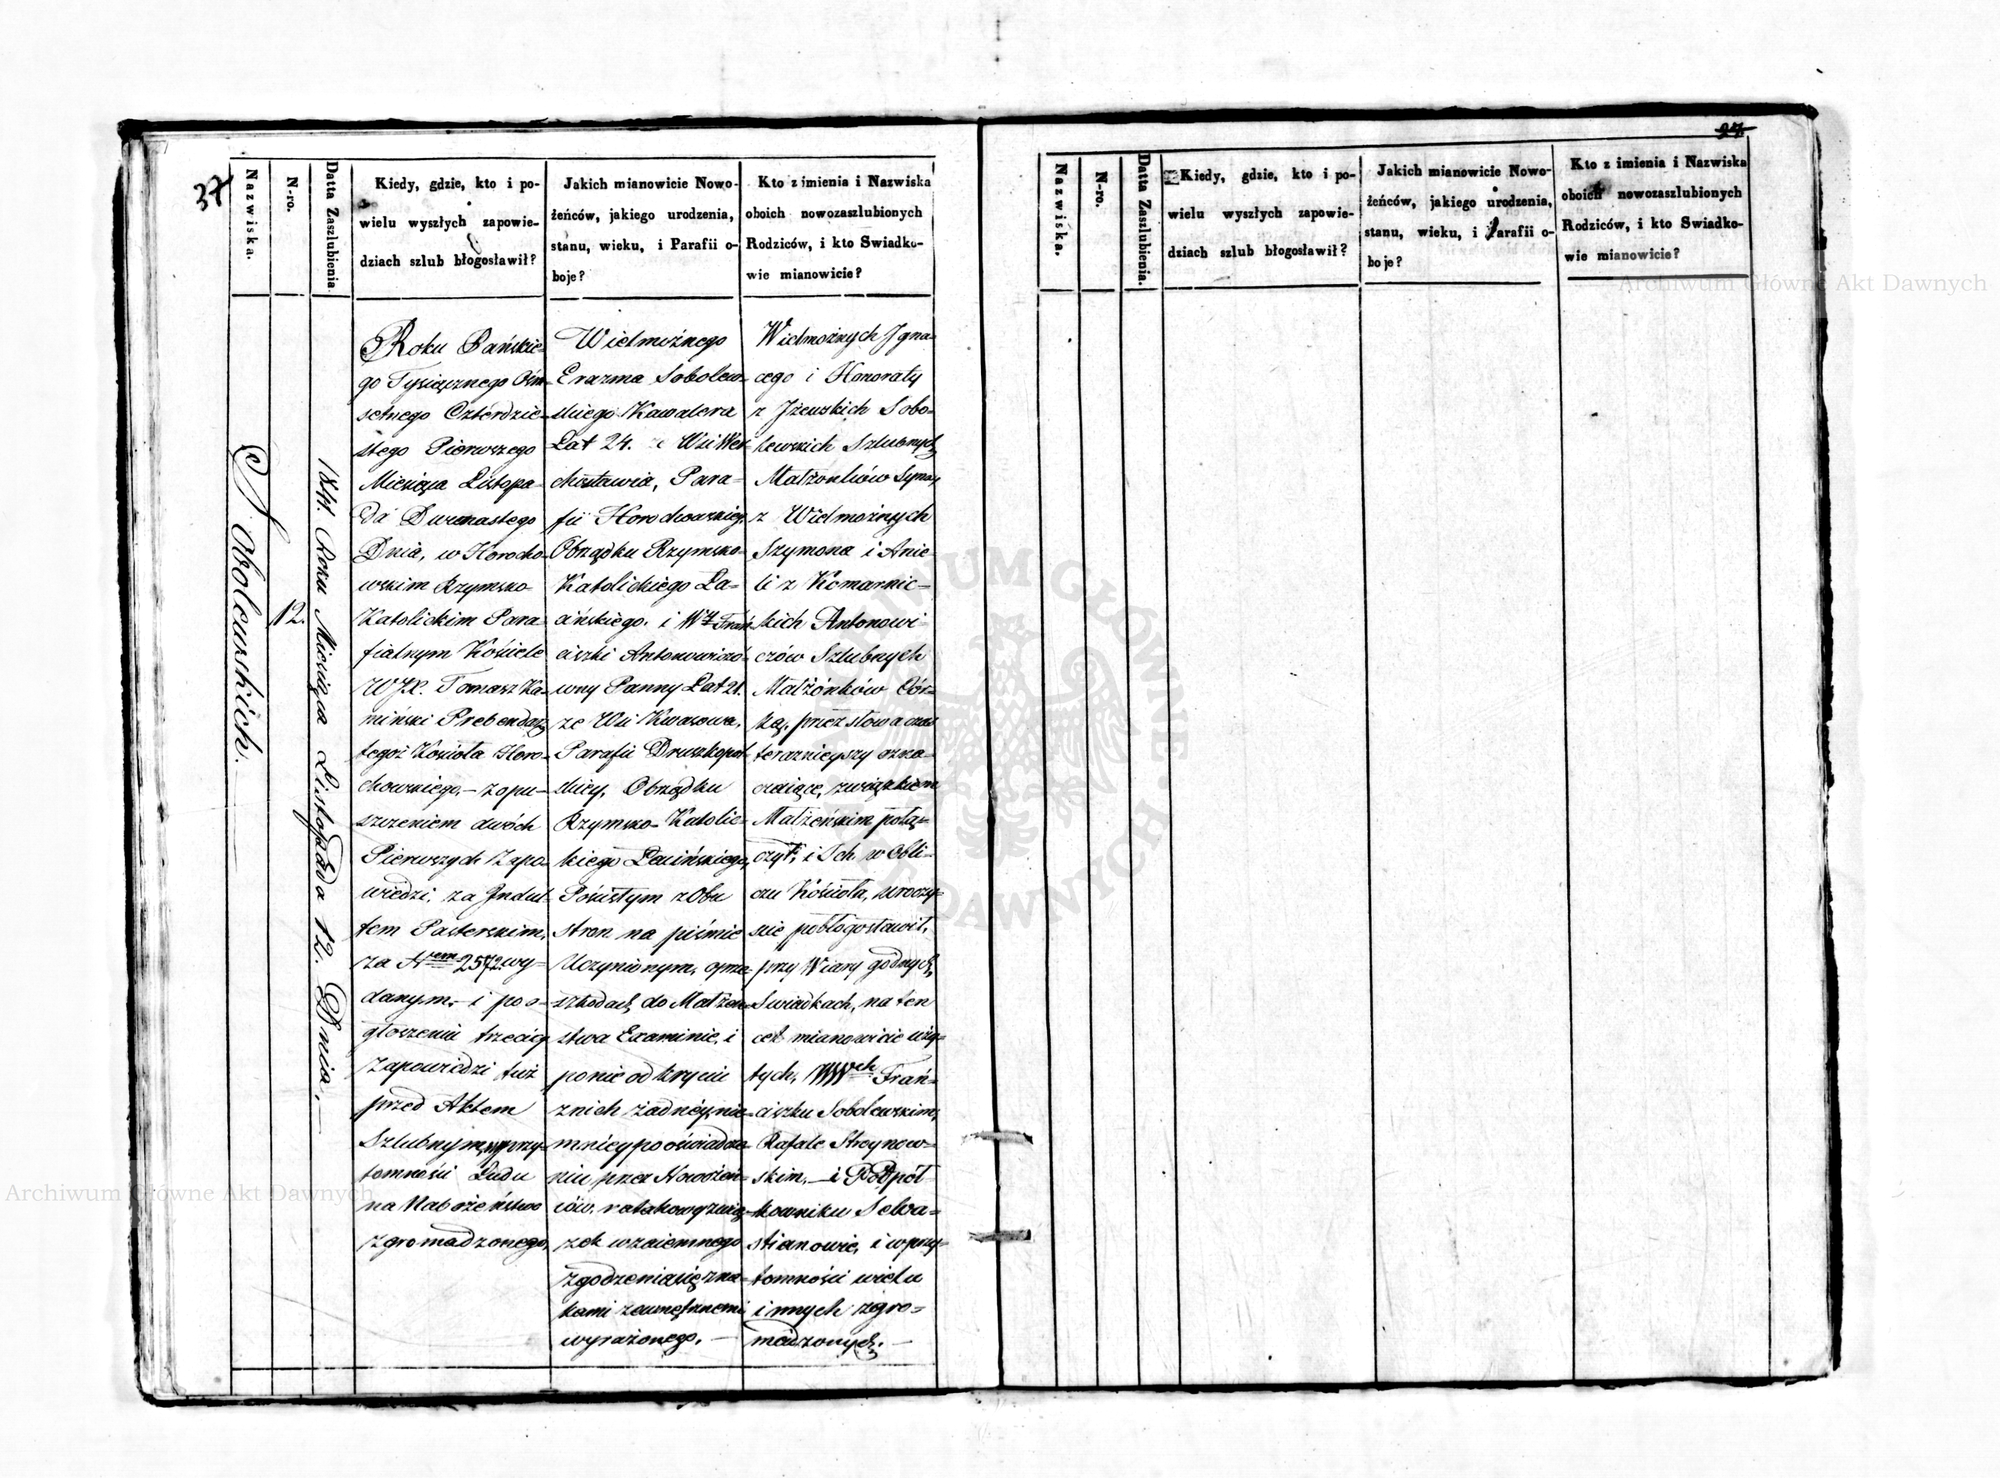 37
Nazwiska.
N-ro.
Datta Zaszlubienia.
Kiedy, gdzie, kto i po-
wielu wyszłych zapowie-
dziach szlub błogosławił?
Jakich mianowicie Nowo-
żeńców, jakiego urodzenia,
stanu, wieku, i Parafii o-
boje?
Kto z imienia i Nazwiska
oboich nowozaszlubionych
Rodziców, i kto Swiadko-
wie mianowicie?
Sobolewskich.
12.
1841. Roku Miesiąca Listopada 12. Dnia.
Roku Pańskie-
go Tysiącznego Ośm-
setnego Czterdzie-
stego Pierwszego
Miesiąca Listopa-
da Dwunastego
Dnia, w Horocho-
wskim Rzymsko-
Katolickim Para-
fialnym Kościele
WJX. Tomasz Ka-
miński Prebendarz
tegoż Kościoła Horo-
chowskiego, - z opu-
szczeniem dwóch
Pierwszych Zapo-
wiedzi, za Indul-
tem Pasterskim,
za Nem 2572. wy-
danym, - i po o-
głoszeniu trzeciey
Zapowiedzi tuż
przed Aktem
Szlubnym, w przy-
tomności Ludu
na Nabożeństwo
zgromadzonego,
Wielmożnego
Erazma Sobolew-
skiego Kawalera
Lat 24. ze Wsi Wer-
chostawia, Para-
fii Horochowskiey,
Obrządku Rzymsko-
Katolickiego Ła-
cińskiego. i Wą Fran-
ciszki Antonowiczó-
wny Panny Lat 21.
ze Wsi Kwasowa,
Parafii Druszkopol-
skiey, Obrządku
Rzymsko-Katolic-
kiego Łacińskiego,
Po ścisłym z obu
stron na piśmie
Uczynionym, o prze-
szkodach do Małżeń-
stwa Examinie, i
po nie odkryciu
z nich żadney, nie-
mniey po oświadcze-
niu przez Nowożeń-
ców, na takowy zwią-
zek wzaiemnego
zgodzenia się zna-
kami zewnętrznemi
wyrażonego. -
Wielmożnych Igna-
cego i Honoraty
z Iżewskich Sobo-
lewskich Szlubnych
Małżonków Syna,
z Wielmożnych
Szymona i Anie-
li z Komarnic-
kich Antonowi-
czów Szlubnych
Małżonków Cór-
ką, przez słowa czas
teraznieyszy ozna-
czaiące, związkiem
Małżeńskim połą-
czył, i Ich w Obli-
czu Kościoła, uroczy-
ście pobłogosławił,
przy Wiary godnych
Swiadkach, na ten
cel mianowicie uży-
tych, WWch Fran-
ciszku Sobolewskim,
Rafale Stroynow-
skim, - i Podpół-
kowniku Selwa-
stianowie, i w przy-
tomności wielu
innych zgro-
madzonych. -
27.
Nazwiska.
N-ro.
Datta Zaszlubienia.
Kiedy, gdzie, kto i po-
wielu wyszłych zapowie-
dziach szlub błogosławił?
Jakich mianowicie Nowo-
żeńców, jakiego urodzenia,
stanu, wieku, i Parafii o-
boje?
Kto z imienia i Nazwiska
oboich nowozaszlubionych
Rodziców, i kto Swiadko-
wie mianowicie?
Archiwum Główne Akt Dawnych
Archiwum Główne Akt Dawnych
ARCHIWUM GŁÓWNE AKT DAWNYCH